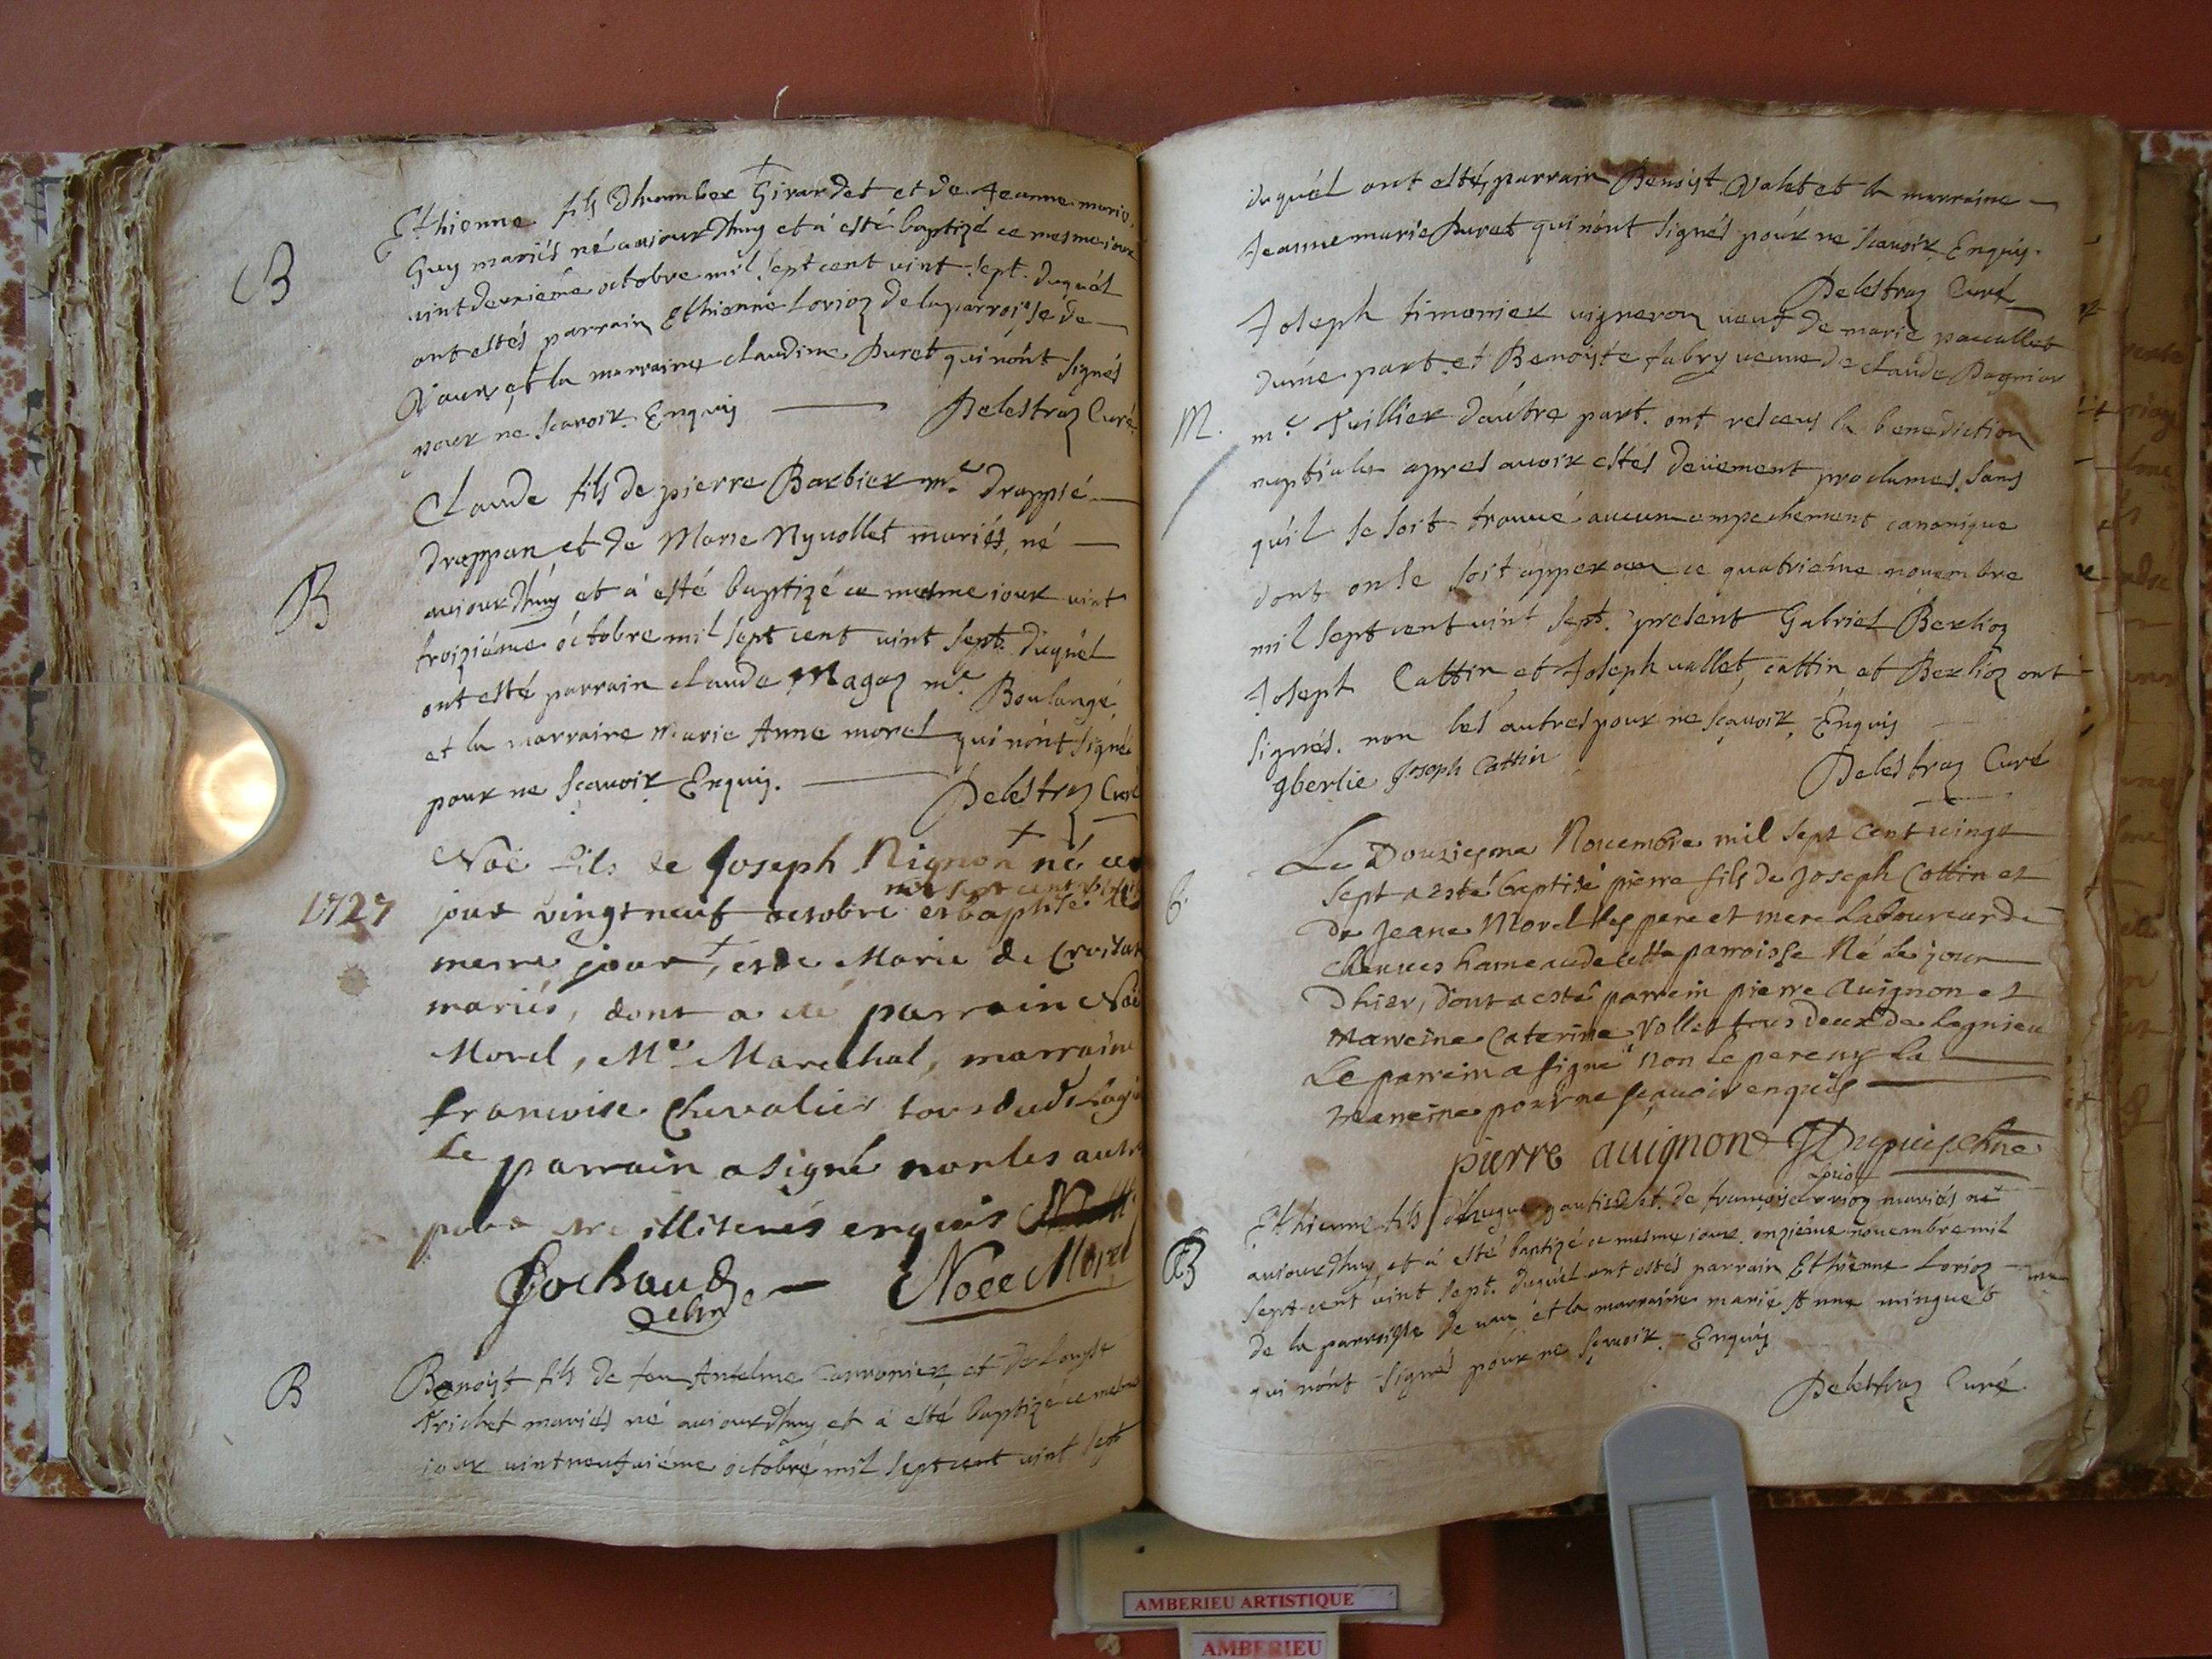 B
Ethienne fils Dhumber Girardet et de Jeanne marie
Guy mariés né aujourdhuy et à esté baptizé ce mesme jour
vint deuxiéme octobre mil sept cent vint sept. duquél
ont estés parrain Ethienne Lorioz de la parroisse de
et la marraine claudine Puret qui nónt signés
pour ne scavoir. Enquis Delestraz Curé
B
Claude fils de pierre Barbier me. drappié
drappan et de Marie Nyvollet mariés, né
aujourdhuy et à esté baptizé ce mesme jour vint
troiziéme óctobre mil sept cent vint sept. duquél
ont esté parrain claude Magaz me. Boulangé
et la marraine Marie Anne morel qui nónt signé
pour ne scavoir Enquis. Delestraz Curé
1727
Noë fils de Joseph Nignon né ce
mil sept cent
jour vingt neuf octobre et baptisé le
meme jour, et de Marie de
mariés, dont a été parrain Noë
Morel, Me. Marechal, marraine
francoise Chevalier tous du
Le parrain a signé non les autres
pour etre illiterés enquis
Cochaud Noee Morel
B
Benoist fils de feu Anselme et de
Trichet mariés né aujourdhuy et à esté baptizé ce mesme
jour vint neufviéme óctobre mil sept cent vint sept
duquél ont esté, parrain Benoist Valet et la marraine
Jeanne marie Puret qui nónt signés póur ne scavoir. Enquis.
Delestraz Curé
M.
Joseph timonier vigneron veuf de marie pacallet
dúne part. et Benoiste fabry veuve de claude Pagnier
me. Tuillier daútre part. ont resceus la benediction
nuptiale apres avoir estés deüement proclames, sans
qúil se soit trouvé aucun empechement canonique
dont on se soit apperceu ce quatriéme novembre
mil sept cent vint sept. present Gabriel Berlioz
Joseph Cattin et Joseph vallet, cattin et Berlioz ont
signés. non les autres pour ne sçavoir, Enquis
gberlie Joseph Cattin
Delestraz Curé
b.
Le Douziesme Novembre mil sept cent vingt
sept a esté baptisé pierre fils de Joseph Cottin et
de Jeane Morel ses pere et mere Laboureur de
hameau de cette parroisse Né le jour
Dhier, dont a esté parrein pierre Avignon et
marreine Caterine Vollet tous deux de Lagnieu
Le parrein a signé non le pere ny la
marreine pour ne sçavoir enquis
pierre avignon JDupuis
B
Loriot
Ethienne fils d'hugue gautier et de françoise Lorioz mariés né
aujourdhuy, et à esté baptizé ce mesme jour. onziéme novembre mil
sept cent vint sept. duquél ont estés parrain Ethienne Lorioz
de la parroisse de et la marraine marie Anne minguet
qui nónt signés póur ne sçavoir. Enquis
Delestraz Curé.
AMBERIEU ARTISTIQUE
AMBERIEU